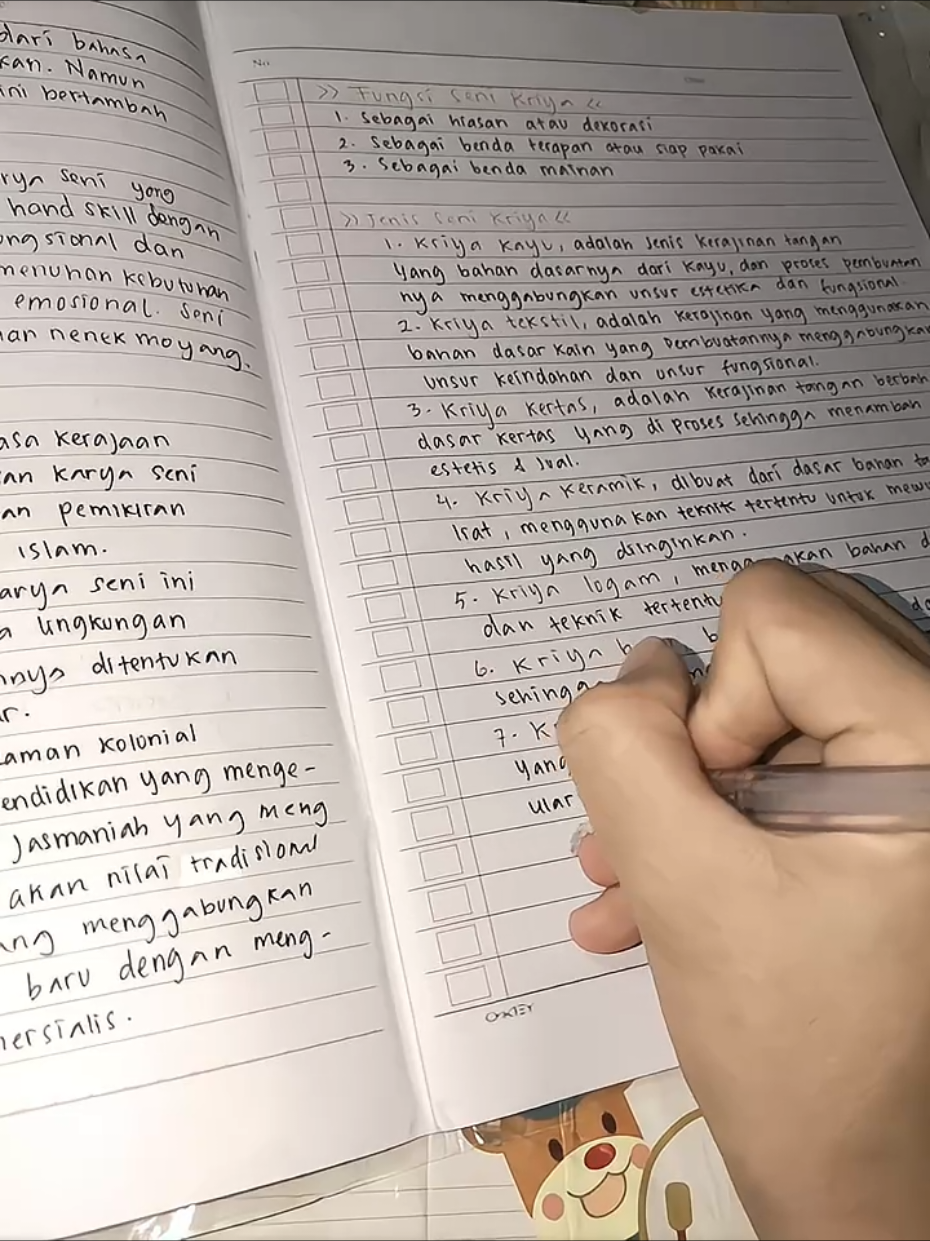 dari bahasa
kan. Namun
ini bertambah
rya seni yang
hand skill dengan
ngsional dan
menuhan kebutuhan
emosional. Seni
an nenek moyang.
asa kerajaan
an karya seni
an pemikiran
islam.
arya seni ini
a lingkungan
nya ditentukan
r.
aman kolonial
endidikan yang menge-
Jasmaniah yang meng
akan nilai tradisional
ang menggabungkan
baru dengan meng-
mersialis.
No
>> Fungsi Seni Kriya <<
1. Sebagai hiasan atau dekorasi
2. Sebagai benda terapan atau siap pakai
3. Sebagai benda mainan
>> Jenis Seni Kriya <<
1. Kriya kayu, adalah jenis kerajinan tangan
yang bahan dasarnya dari kayu, dan proses pembuatan
nya menggabungkan unsur estetika dan fungsional.
2. Kriya tekstil, adalah kerajinan yang menggunakan
bahan dasar kain yang pembuatannya menggabungkan
unsur keindahan dan unsur fungsional.
3. Kriya kertas, adalah kerajinan tangan berbah
dasar kertas yang di proses sehingga menambah
estetis & jual.
4. Kriya keramik, dibuat dari dasar bahan ta
liat, menggunakan teknik tertentu untuk mewu
hasil yang diinginkan.
5. Kriya logam, menggunakan bahan d
dan teknik tertentu
6. Kriya
sehingga
7. K
yang
ular